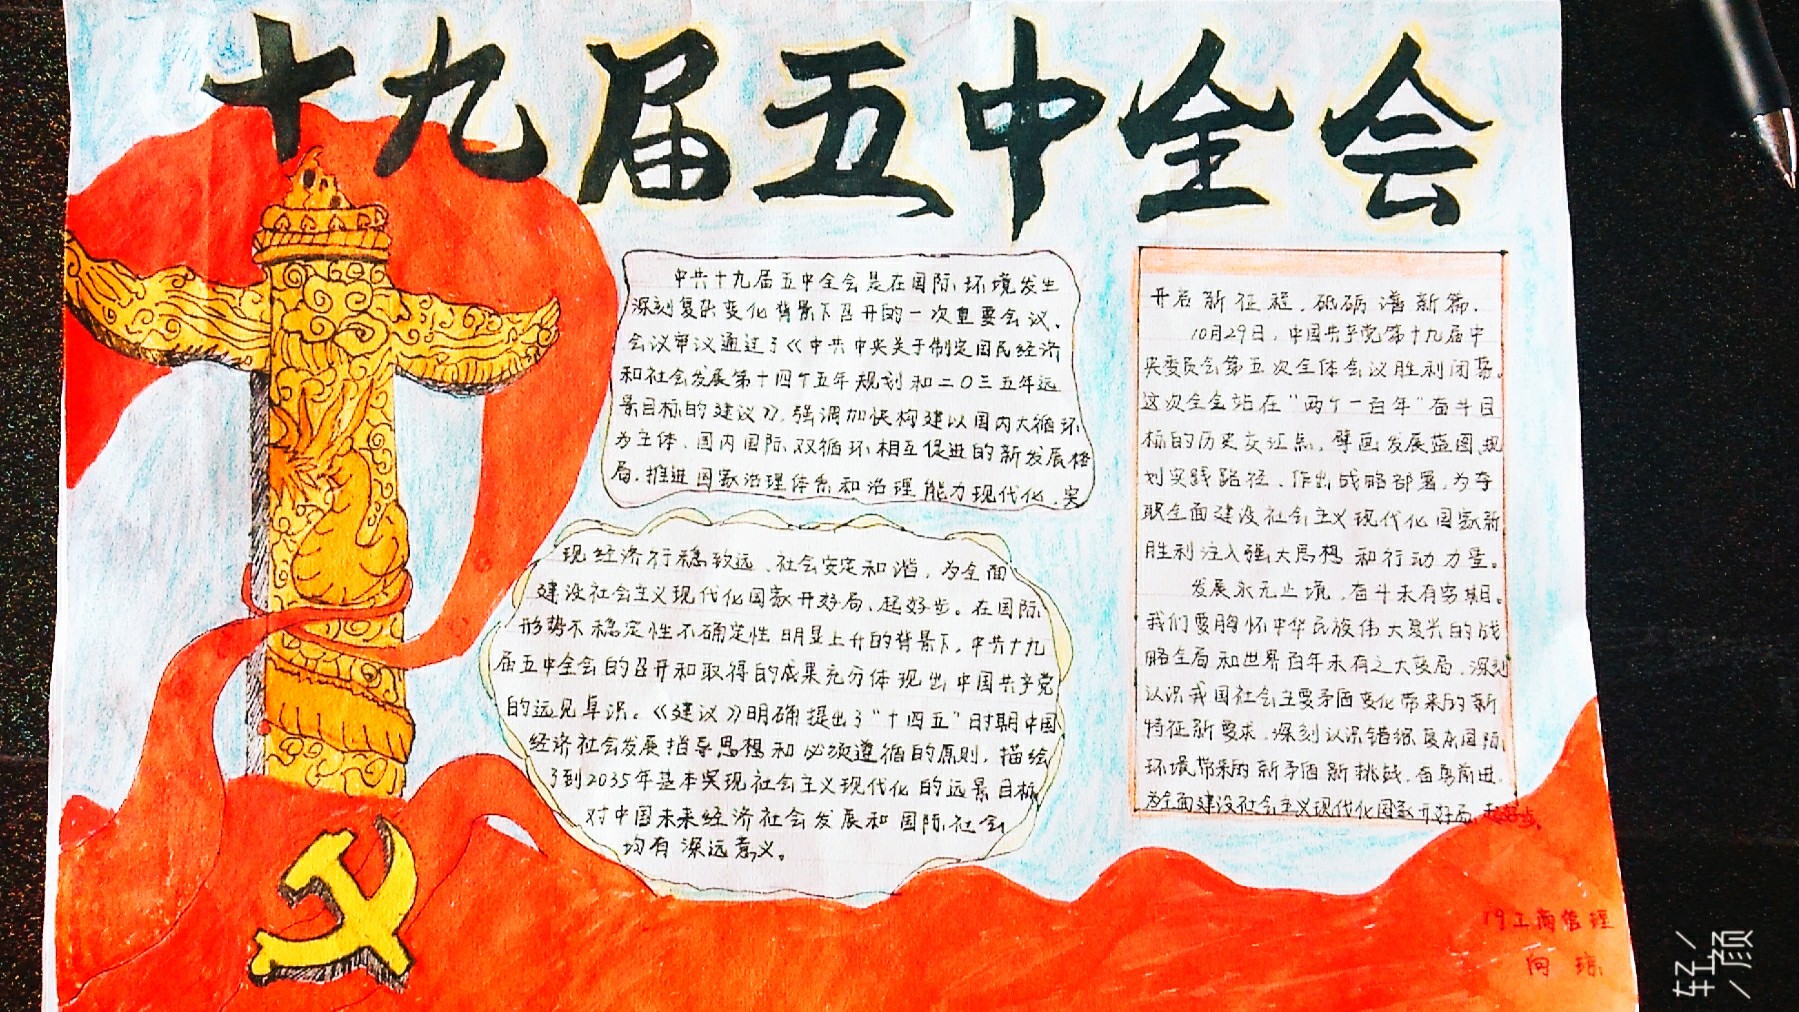 十九届五中全会
中共十九届五中全会是在国际环境发生
深刻复杂变化背景下召开的一次重要会议、
会议审议通过了《中共中央关于制定国民经济
和社会发展第十四个五年规划和二〇三五年远
景目标的建议》，强调加快构建以国内大循环
为主体、国内国际双循环相互促进的新发展格
局，推进国家治理体系和治理能力现代化、实
现经济行稳致远、社会安定和谐，为全面
建设社会主义现代化国家开好局、起好步。在国际
形势不稳定性不确定性明显上升的背景下，中共十九
届五中全会的召开和取得的成果充分体现出中国共产党
的远见卓识。《建议》明确提出了“十四五”时期中国
经济社会发展指导思想和必须遵循的原则，描绘
了到2035年基本实现社会主义现代化的远景目标
对中国未来经济社会发展和国际社会
均有深远意义。
开启新征程，砥砺谱新篇.
10月29日，中国共产党第十九届中
央委员会第五次全体会议胜利闭幕。
这次全会站在“两个一百年”奋斗目
标的历史交汇点，擘画发展蓝图、规
划实践路径、作出战略部署，为夺
取全面建设社会主义现代化国家新
胜利注入强大思想和行动力量。
发展永无止境，奋斗未有穷期。
我们要胸怀中华民族伟大复兴的战
略全局和世界百年未有之大变局，深刻
认识我国社会主要矛盾变化带来的新
特征新要求，深刻认识错综复杂国际
环境带来的新矛盾新挑战，奋勇前进
为全面建设社会主义现代化国家开好局，起好步。
19工商管理
向琼
轻颜